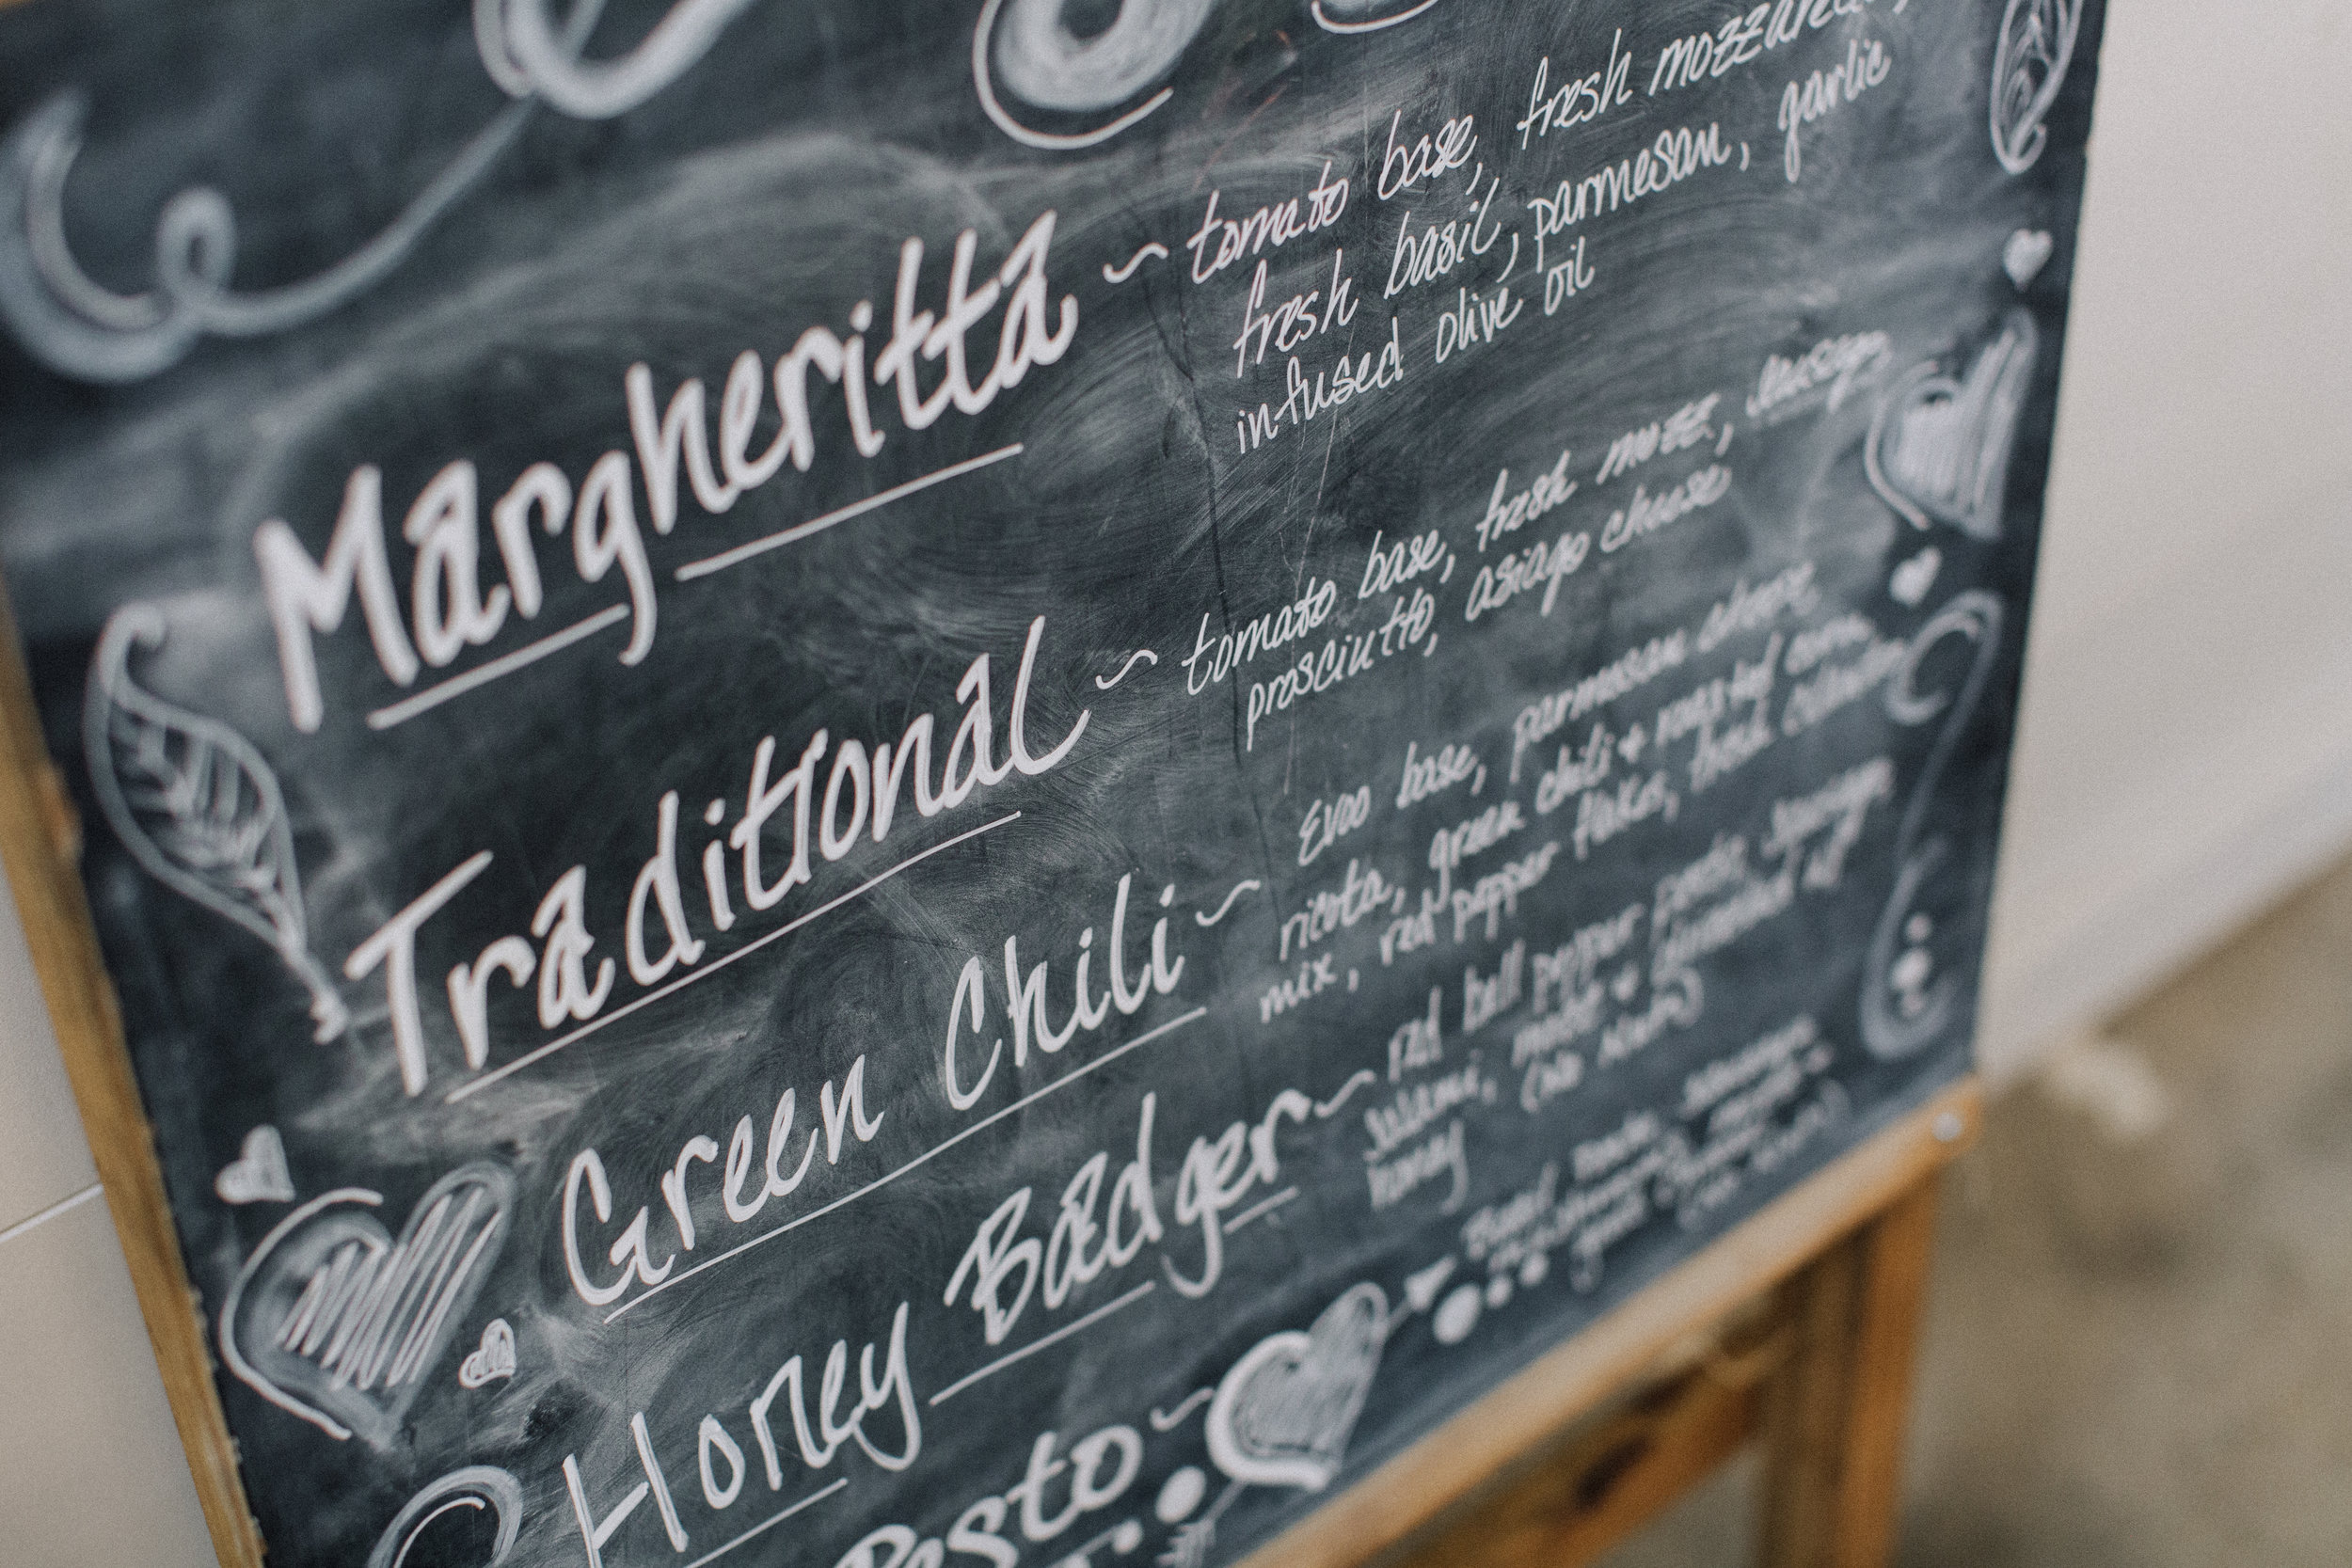 Margheritta ~ tomato base, fresh mozzarella,
fresh basil, parmesan, garlic
infused olive oil
Traditional ~ tomato base, fresh mozz, sausage,
prosciutto, asiago cheese
Green Chili ~ Evoo base, parmesan cheese,
ricotta, green chili + roasted corn
mix, red pepper flakes, fresh cilantro
Honey Badger ~ red bell pepper pesto, sausage,
salami, mozz + drizzled w/
honey (no nuts)
Pesto ~ Basil